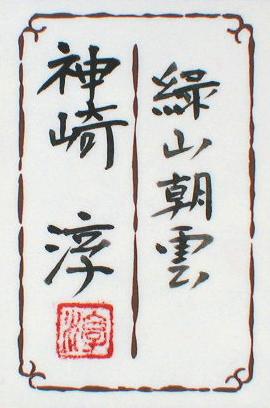 緑山朝雲
神崎 淳
淳